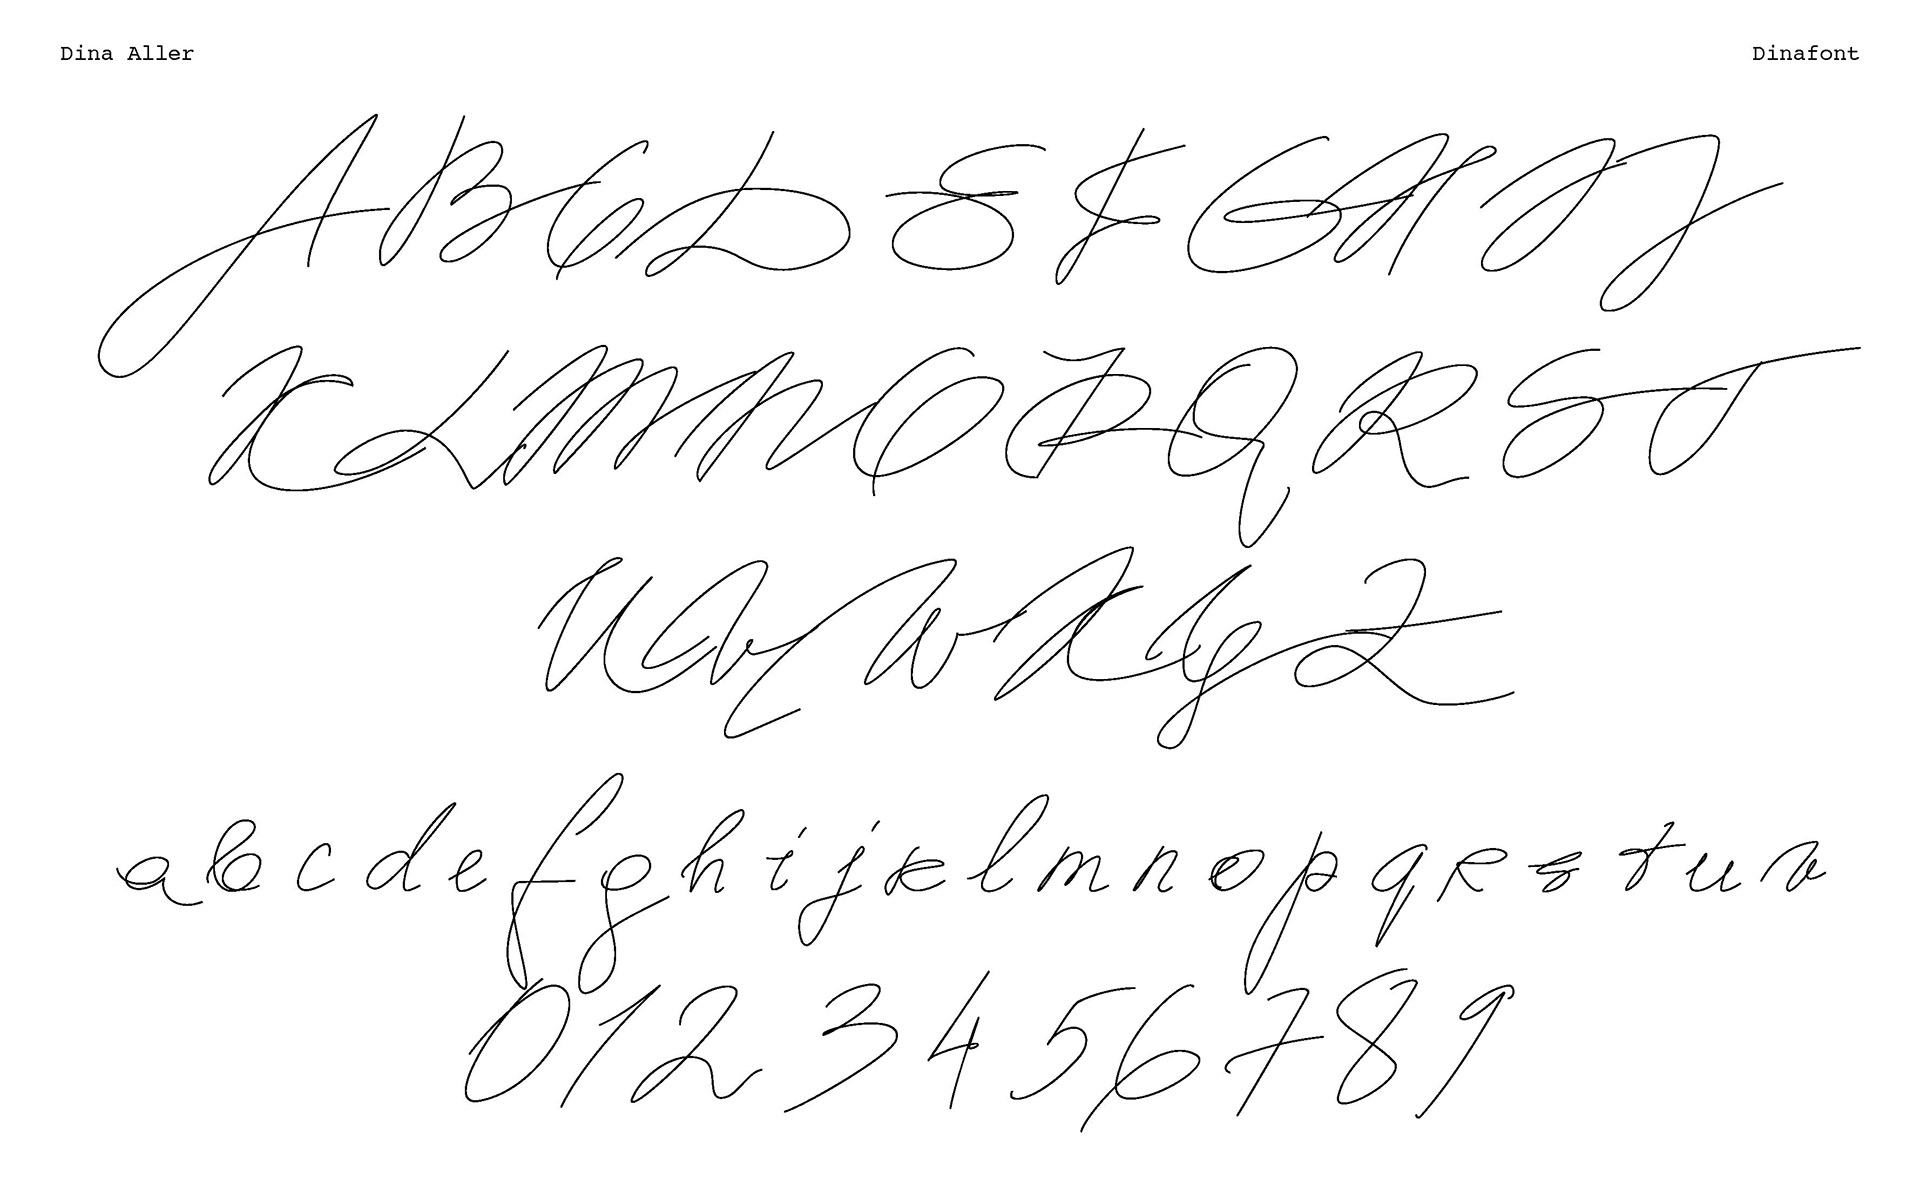 Dina Aller Dinafont
A B C D E F G H I J
K L M N O P Q R S T
U V W X Y Z
a b c d e f g h i j k l m n o p q r s t u v
0 1 2 3 4 5 6 7 8 9